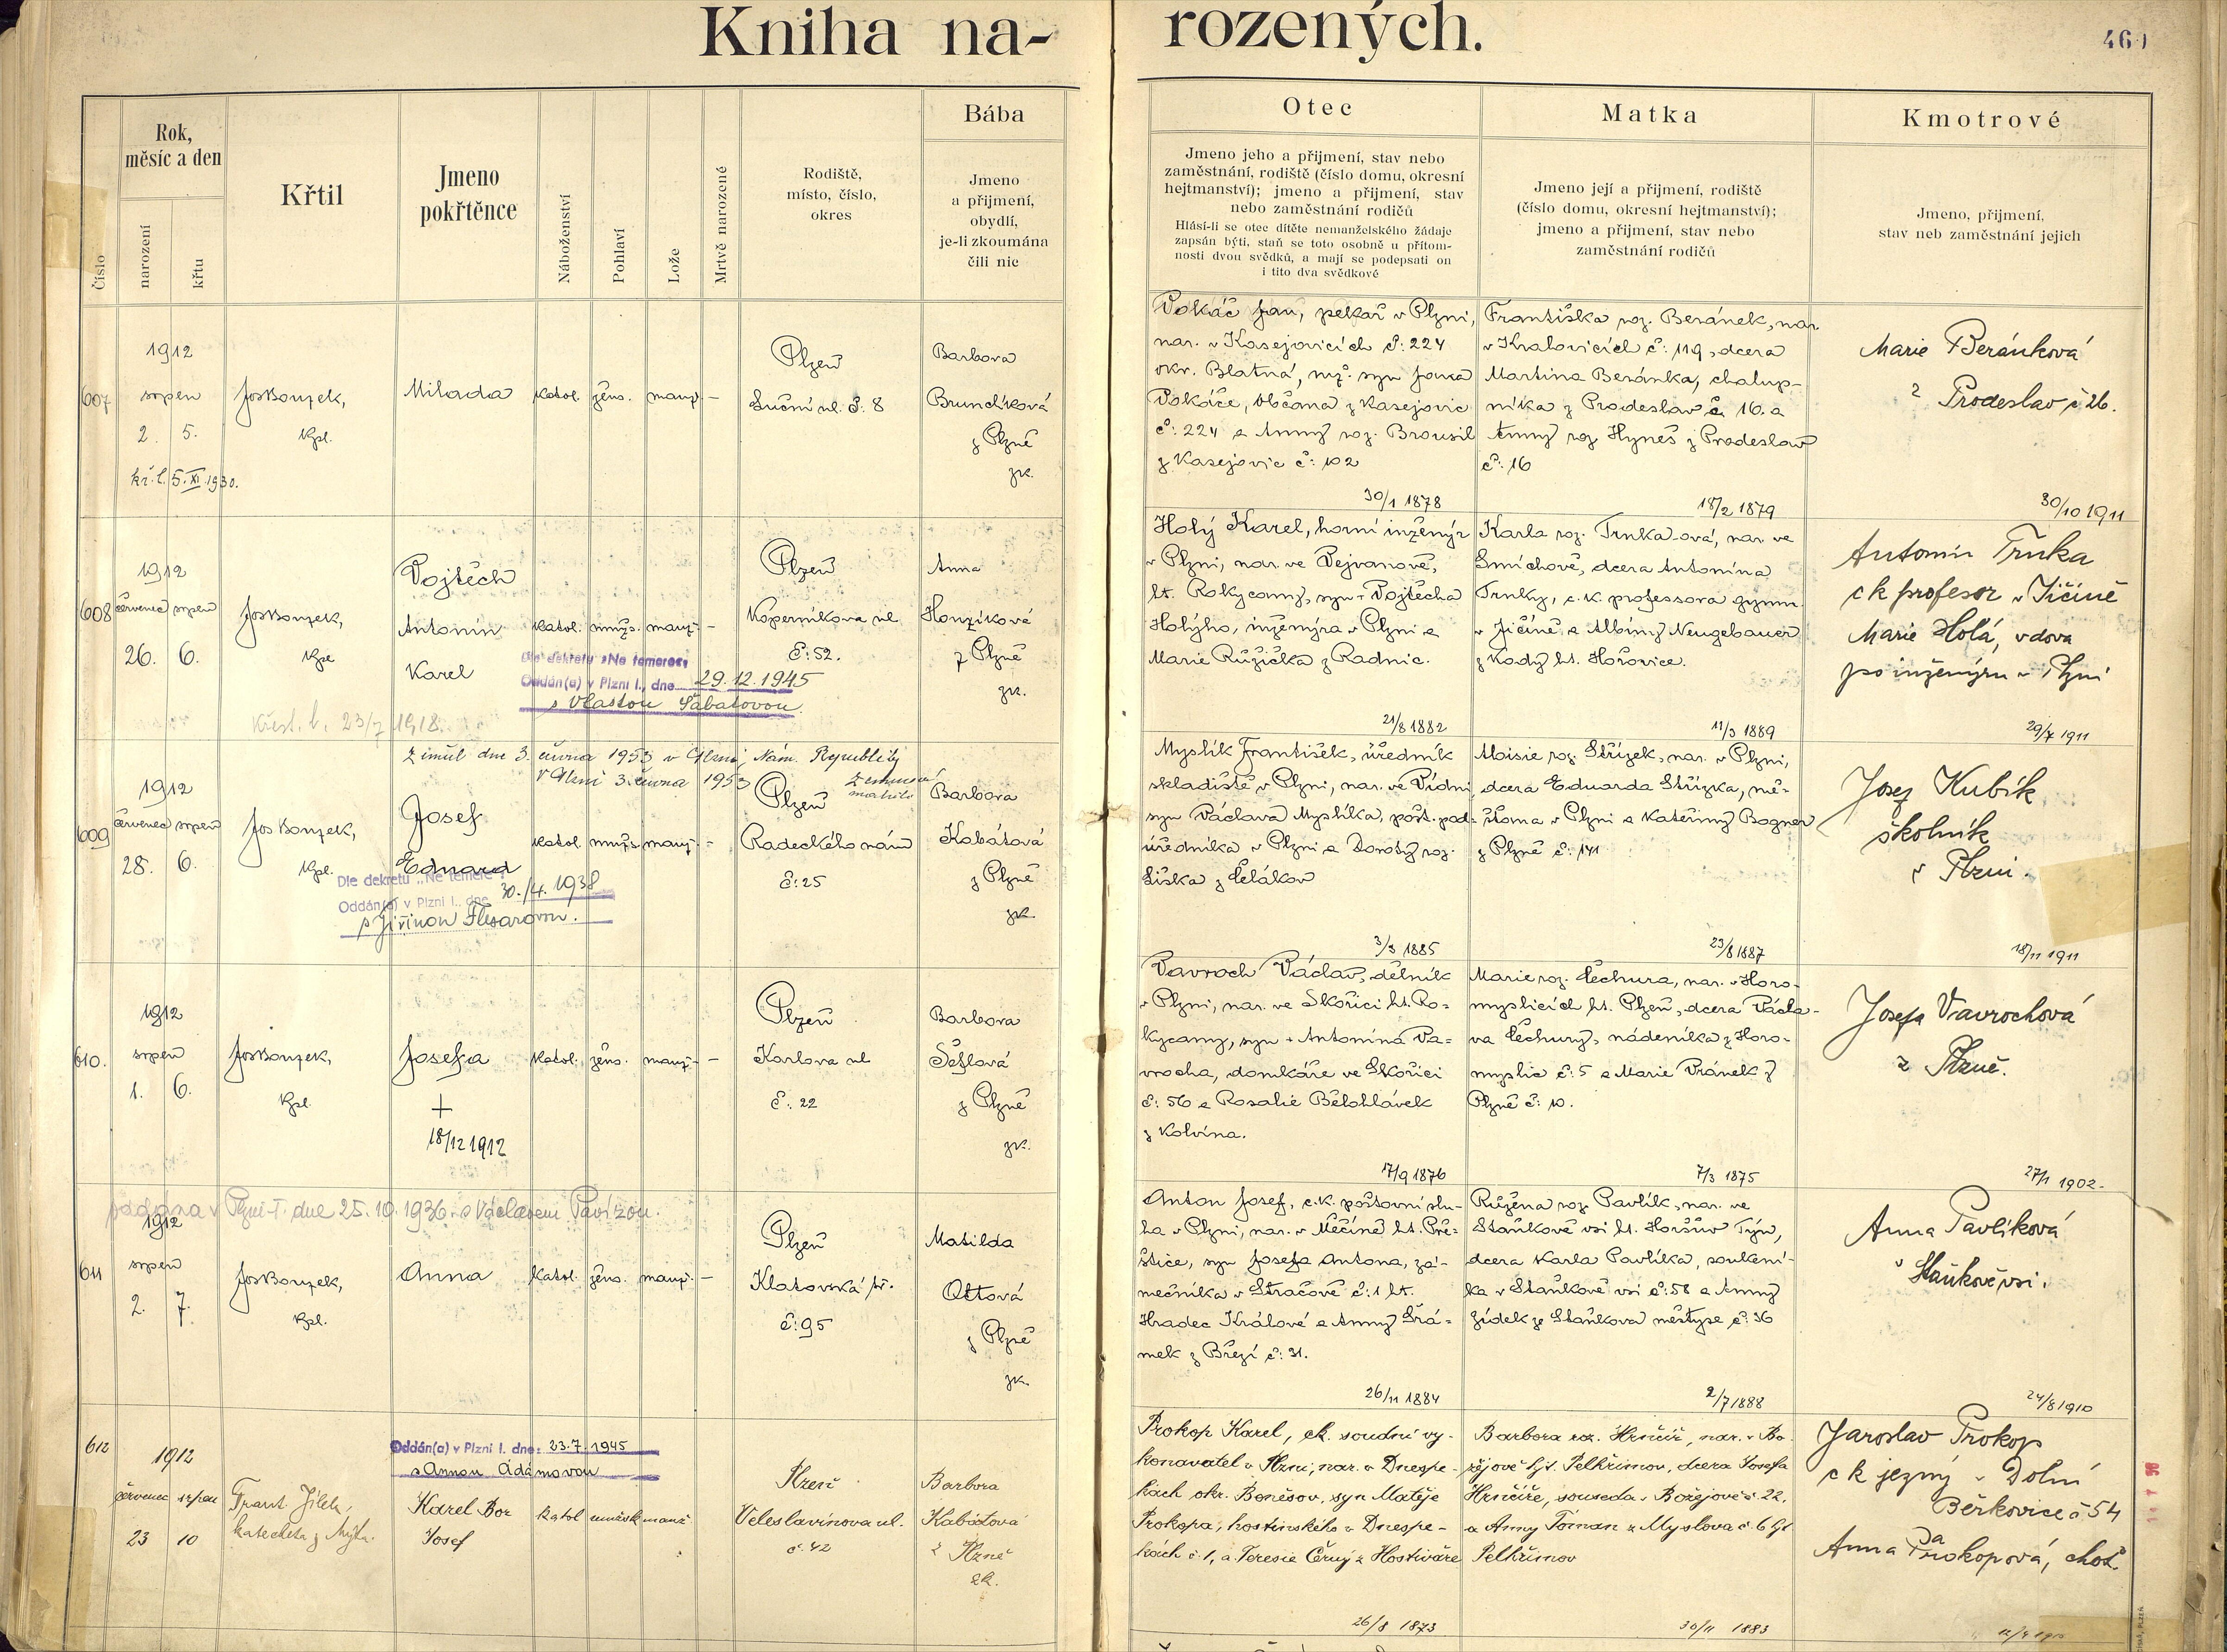 Kniha na-
rozených.
Číslo
Rok,
měsíc a den
narození
křtu
Křtil
Jmeno
pokřtěnce
Náboženství
Pohlaví
Lože
Mrtvě narozené
Rodiště,
místo, číslo,
okres
Bába
Jmeno
a přijmení,
obydlí,
je-li zkoumána
čili nic
Otec
Jmeno jeho a přijmení, stav nebo
zaměstnání, rodiště (číslo domu, okresní
hejtmanství); jmeno a přijmení, stav
nebo zaměstnání rodičů
Hlásí-li se otec dítěte nemanželského žádaje
zapsán býti, staň se toto osobně u přítom-
nosti dvou svědků, a mají se podepsati on
i tito dva svědkové
Matka
Jmeno její a přijmení, rodiště
(číslo domu, okresní hejtmanství);
jmeno a přijmení, stav nebo
zaměstnání rodičů
Kmotrové
Jmeno, přijmení,
stav neb zaměstnání jejich
607
1912
srpen
2. 5.
kř. l. 5. XI. 1930.
Kpl.
Milada
katol. žens. manž. –
Plzeň
Luční ul. č: 8
Barbora
Brunclíková
z Plzně
zk.
Vokáč Jan, pekař v Plzni,
nar. v Kasejovicích č: 224
okr. Blatná, mž. syn Jana
Vokáče, občana z Kasejovic
č: 224 a Anny roz. Brousil
z Kasejovic č: 102
30/1 1878
Františka roz. Beránek, nar.
v Kralovicích č: 119, dcera
Martina Beránka, chalup-
níka z Prodeslav č. 16. a
Anny roz. Hyneš z Prodeslav
č: 16
18/2 1879
Marie Beránková
z Prodeslav č 26.
30/10 1911
608
1912
červenec srpen
26. 6.
Kpl
Vojtěch
Antonín
Karel
katol. mužs. manž. –
Dle dekretu »Ne temere«
Oddán(a) v Plzni I., dne 29. 12. 1945
s Vlastou Šabatovou
Křest. l. 23/7 1918.
Plzeň
Koperníkova ul
č: 52.
Anna
Honzíková
z Plzně
zk.
Holý Karel, horní inženýr
v Plzni, nar. ve Vejvanově,
ht. Rokycany, syn + Vojtěcha
Holýho, inženýra v Plzni a
Marie Růžička z Radnic.
21/8 1882
Karla roz. Trnka-ová, nar. ve
Smíchově, dcera Antonína
Trnky, c. k. professora gymn.
v Jičíně a Albíny Neugebauer
ht. Hořovice.
11/3 1889
Antonín Trnka
ck profesor v Jičíně
Marie Holá, vdova
po inženýru v Plzni
29/7 1911
609
Zemřel dne 3. června 1953 v Plzni, Nám. Republiky
V Plzni 3. června 1953
1912
červenec srpen
28. 6.
Kpl.
Josef
Eduard
katol. mužs. manž. –
Dle dekretu „Ne temere“
Oddán(a) v Plzni I., dne 30./4. 1938
s Jiřinou Flesarovou.
Plzeň
Radeckého nám
č: 25
Barbora
Kabátová
z Plzně
zk.
Myslík František, úředník
skladiště v Plzni, nar. ve Vídni,
syn Václava Myslíka, pošt. pod-
úředníka v Plzni a Doroty roz.
Liška z Čelákov
3/3 1885
Aloisie roz. Střízek, nar. v Plzni,
dcera Eduarda Střízka, mě-
šťana v Plzni a Kateřiny Bogner
z Plzně č: 141
23/8 1887
Josef Kubík
školník
v Plzni.
18/11 1911
610.
1912
srpen
1. 6.
Kpl.
Josefa
+
18/12 1912
katol. žens. manž. –
Plzeň
Karlova ul
č: 22
Barbora
Šeflová
z Plzně
zk.
Vavroch Václav, dělník
v Plzni, nar. ve Skořici ht. Ro-
kycany, syn + Antonína Va-
vrocha, domkáře ve Skořici
č: 56 a Rosalie Bělohlávek
z Kolvína.
17/9 1876
Marie roz. Čechura, nar. v Horo-
myslicích ht. Plzeň, dcera Václa-
va Čechury, nádeníka z Horo-
myslic č: 5 a Marie Vránek z
Plzně č: 10.
7/3 1875
Josefa Vavrochová
z Plzně.
27/1 1902
611
oddána v Plzni-I. dne 25. 10. 1936. s Václavem Pavízou.
1912
srpen
2. 7.
Kpl.
Anna
katol. žens. manž. –
Plzeň
Klatovská tř.
č: 95
Matilda
Ottová
z Plzně
zk.
Anton Josef, c. k. poštovní slu-
ha v Plzni, nar. v Měčíně ht. Pře-
štice, syn Josefa Antona, zá-
mečníka v Stračově č: 1 ht.
Hradec Králové a Anny Šrá-
mek z Březí č: 31.
26/11 1884
Růžena roz. Pavlík, nar. ve
Staňkově vsi ht. Horšův Týn,
dcera Karla Pavlíka, soukeni-
ka v Staňkově vsi č: 58 a Anny
Zídek ze Staňkova městyse č: 36
2/7 1888
Anna Pavlíková
v Staňkově vsi.
24/8 1910
612
1912
červenec srpen
23 10
Frant. Jílek,
katecheta z Mýta.
Oddán(a) v Plzni I. dne: 23. 7. 1945
s Annou Adámovou
Karel Bor
Josef
katol mužsk manž
Plzeň
Veleslavínova ul.
č. 42
Barbora
Kabátová
z Plzně
zk.
Prokop Karel, ck. soudní vy-
konavatel v Plzni, nar. v Dnespe-
kách okr. Benešov, syn Matěje
Prokopa, hostinského v Dnespe-
kách č. 1, a Teresie Černý z Hostivaře
26/8 1873
Barbora roz. Hrnčíř, nar. v Bo-
žejově hjt. Pelhřimov, dcera Josefa
Hrnčíře, souseda v Božejově č. 22.
a Anny Toman z Myslova č. 6 hjt
Pelhřimov
30/11 1883
Jaroslav Prokop
v Dolní
Běrkovice č 54
a
Anna Prokopová, choť.